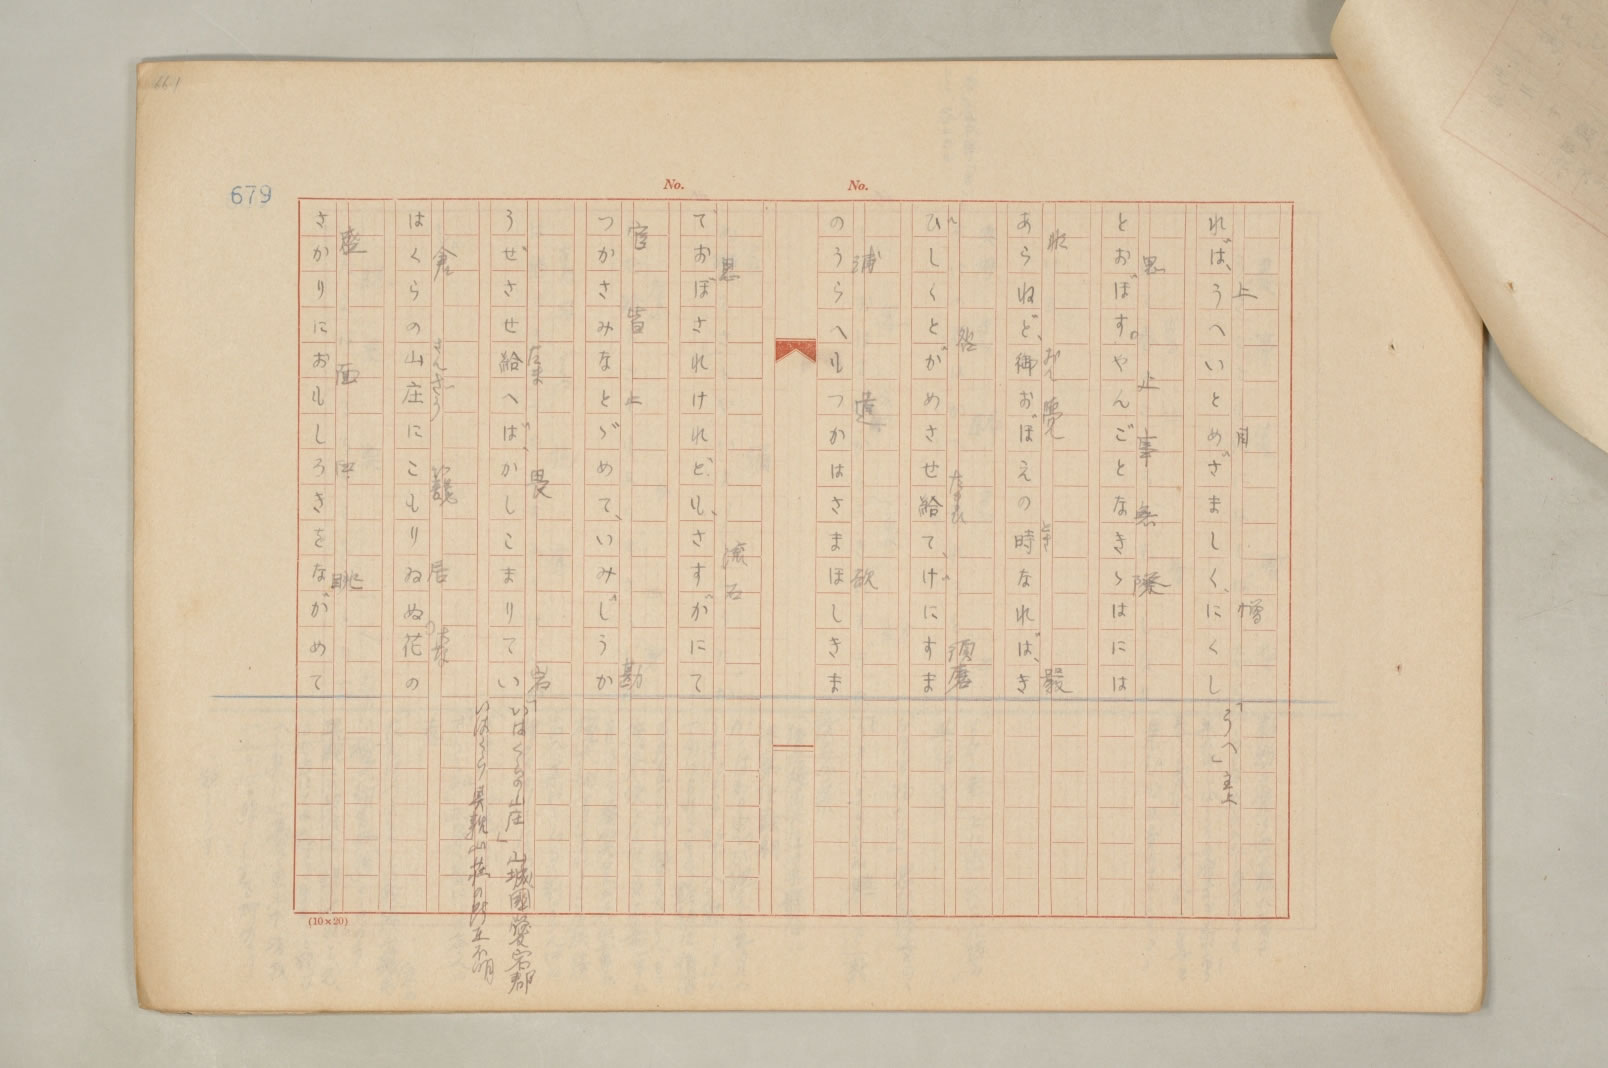 661
679
No.
No.
れば、うへいとめざましく、にくし
上
目
憎
「うへ」主上
とおぼす。やんごとなきゝはにには
思
止
事
無
際
あらねど、御おぼえの時なれば、き
おん
覚
とき
厳
びしくとがめさせ給て、げにすま
咎
たまひ
須磨
のうらへもつかはさまほしきま
浦
遣
欲
でおぼされけれど、も、さすがにて
思
流石
つかさみなとゞめて、いみじうか
官
皆
止
勘
うぜさせ給へば、かしこまりてい
たま
畏
岩
「いはくらの山庄」山城國愛宕郡
いはくら
はくらの山庄にこもりゐぬ花の
倉
さんざう
籠
居
はな
さかりにおもしろきをながめて
盛
面
眺
(10×20)